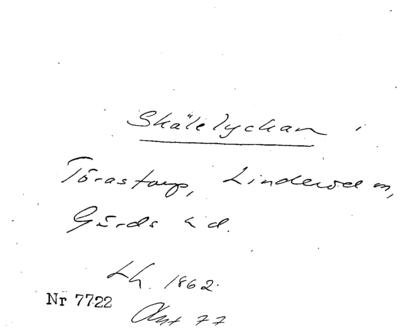 Skälelyckan i
Törastorp, Linderöd sn,
Gärds hd.
Lh. 1862.
Nr 7722
Akt 77